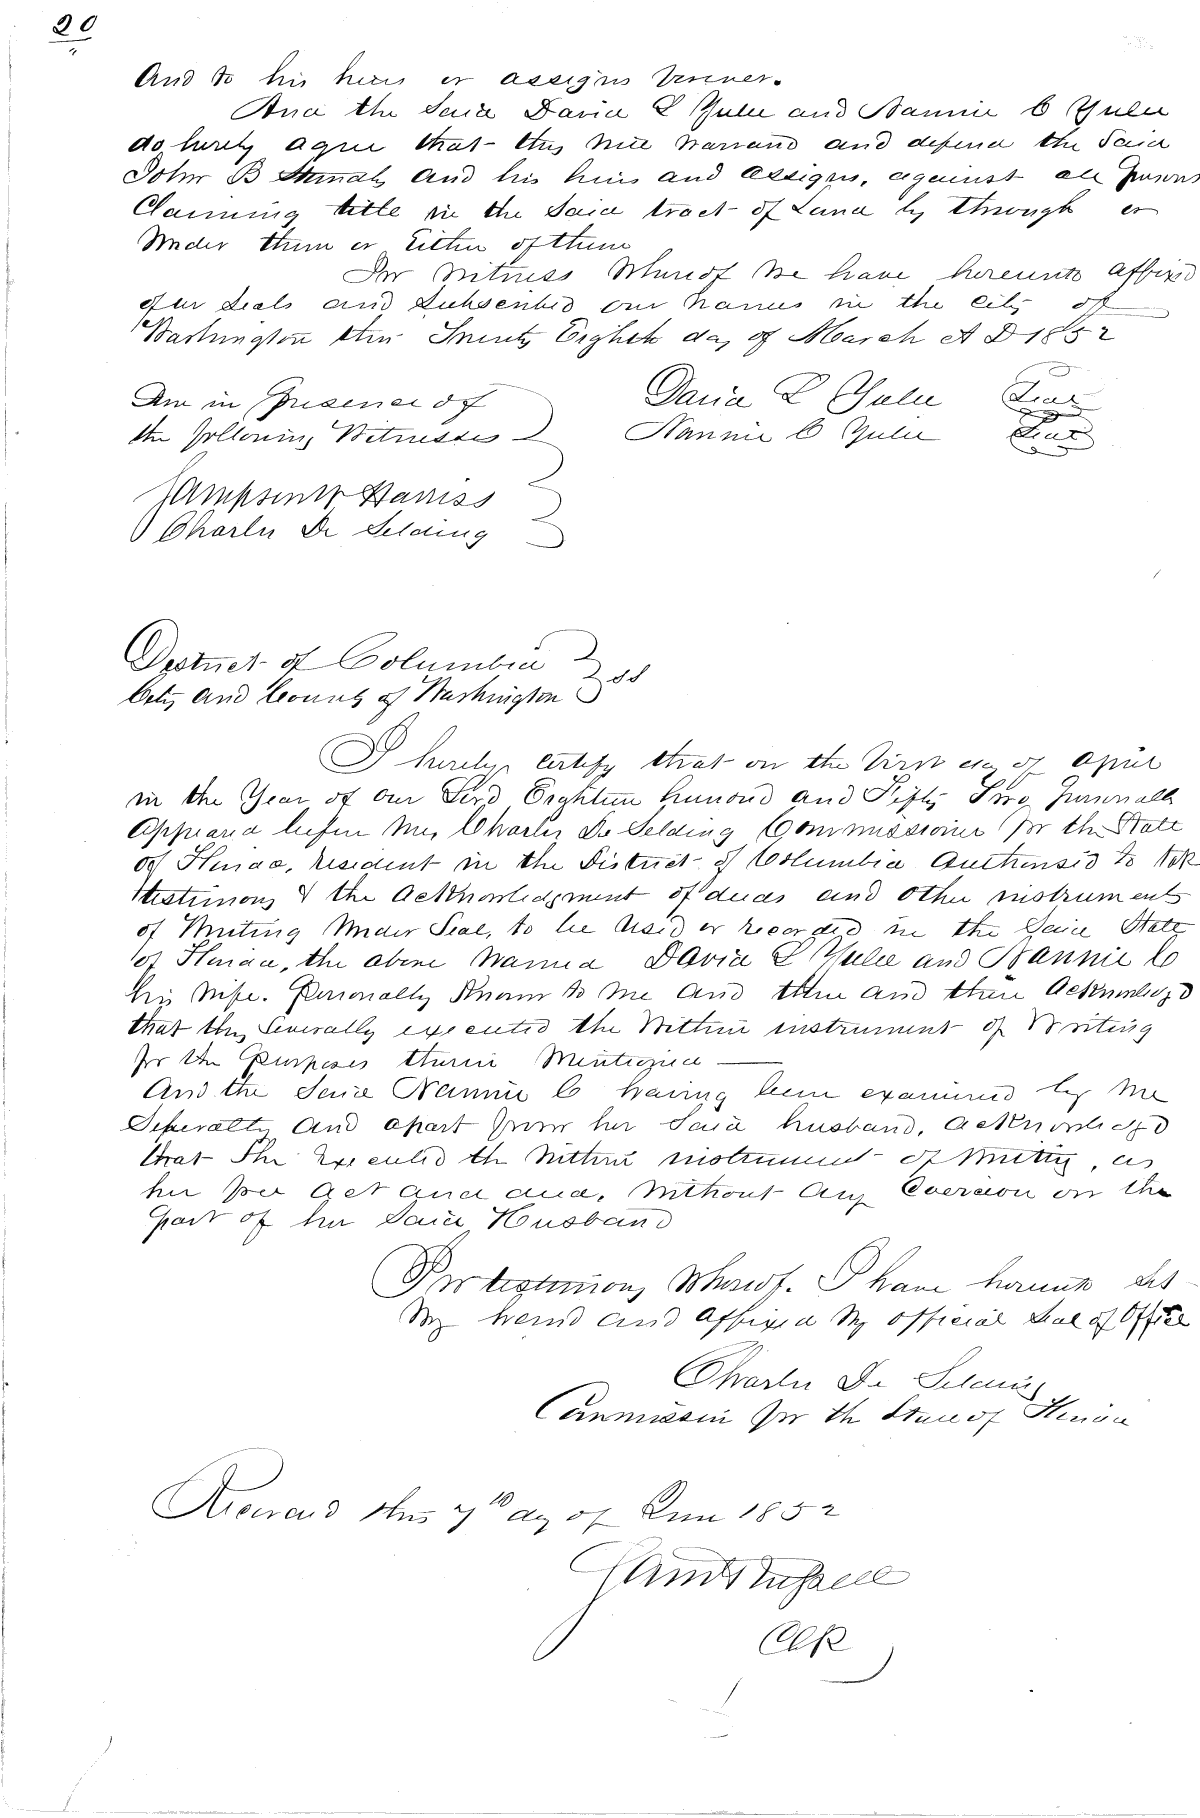 20
And to his heirs or assigns forever.
And the Said David L Yulee and Nannie C Yulee
do hereby agree that they will warrand and defend the Said
John B and his heirs and assigns, against all Persons
Claiming title in the Said tract of Land by through or
Under them or Either of them
In Witness Whereof We have hereunto affixed
our Seals and Subscribed our names in the City of
Washington this Twenty Eighth day of March A D 1852
in Presence of
the following Witnesses
David L Yulee Seal
Nannie C Yulee Seal
Sampson W Harriss
Charles De Selding
District of Columbia
City and County of Washington ss
I hereby certify that on the first day of April
in the Year of our Lord Eighteen hundred and Fifty Two personally
Appeared before me, Charles De Selding Commissioner for the State
of Florida, resident in the District of Columbia Authorised to take
testimony & the Acknowledgment of deeds and other instruments
of Writing Under Seal, to be Used or recorded in the Said State
of Florida, the above Named David L Yulee and Nannie C
his Wife. Personally Known to me and then and there Acknowledged
that they Severally executed the Within instrument of Writing
for the Purposes therein Mentioned
And the Said Nannie C having been examined by Me
Seperatly And apart from her Said husband, acknowledged
that She Executed the Within instrument of writing, as
her free Act and deed, Without Any Coercion on the
Part of her Said Husband
In testimony Whereof. I have hereunto Set
My hand and affixed My official Seal of Office
Charles De Selding
Commissioner for the State of Florida
Recorded this day of June 1852
Clk